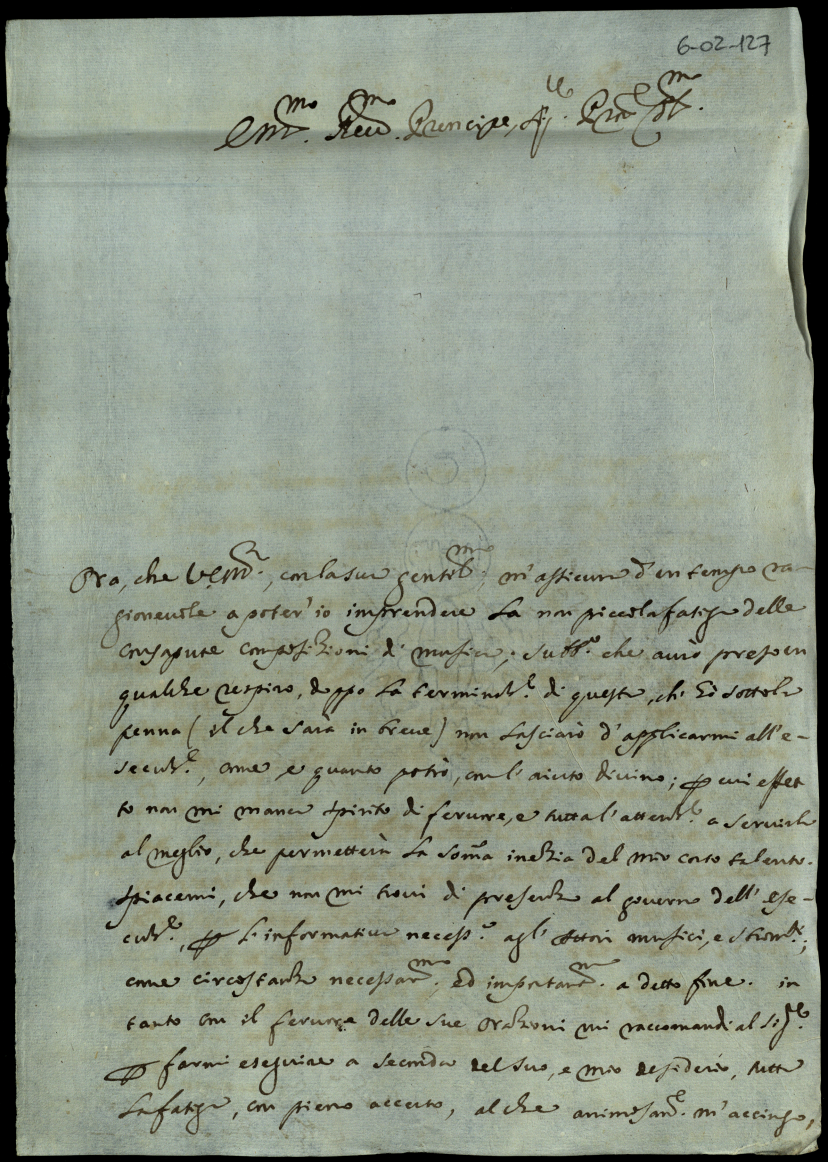 6-02-127
Em.mo Reu.mo Prencipe, Sig.re Prne Col.mo
Ora, che V. Em.a, con la sua gentil.ma, m'assicura d'un tempo ra-
gioneuole a poter' io imprendere la non piccola fatiga delle
consapute composizioni di musica; subb.o che auiò preso un
qualche respiro, doppo la terminaz.e di questa, ch' hò sotto la
penna (il che sarà in breue) non lasciarò d'applicarmi all'e-
secuz.e, come, e quanto potrò, con l'aiuto diuino; ꝑ cui effet
to non mi manca spirito di feruore, e tutta l'attenz.e a seruirla
al meglio, che permetterà la som̃a inezia del mio corto talento.
spiacemi, che non mi troui di presenza al gouerno dell' ese-
cuz.e, ꝑ l'informatiua necess.a agl' Attori musici, e strom.ti;
come circostanza necessar.ma, ed importan.ma a detto fine. in
tanto con il feruore delle sue orazioni mi raccomandi al Sig.re
ꝑ farmi eseguire a seconda del suo, e mio desiderio, tutta
la fatiga, con pieno accerto, al che animosam.e m'accingo,